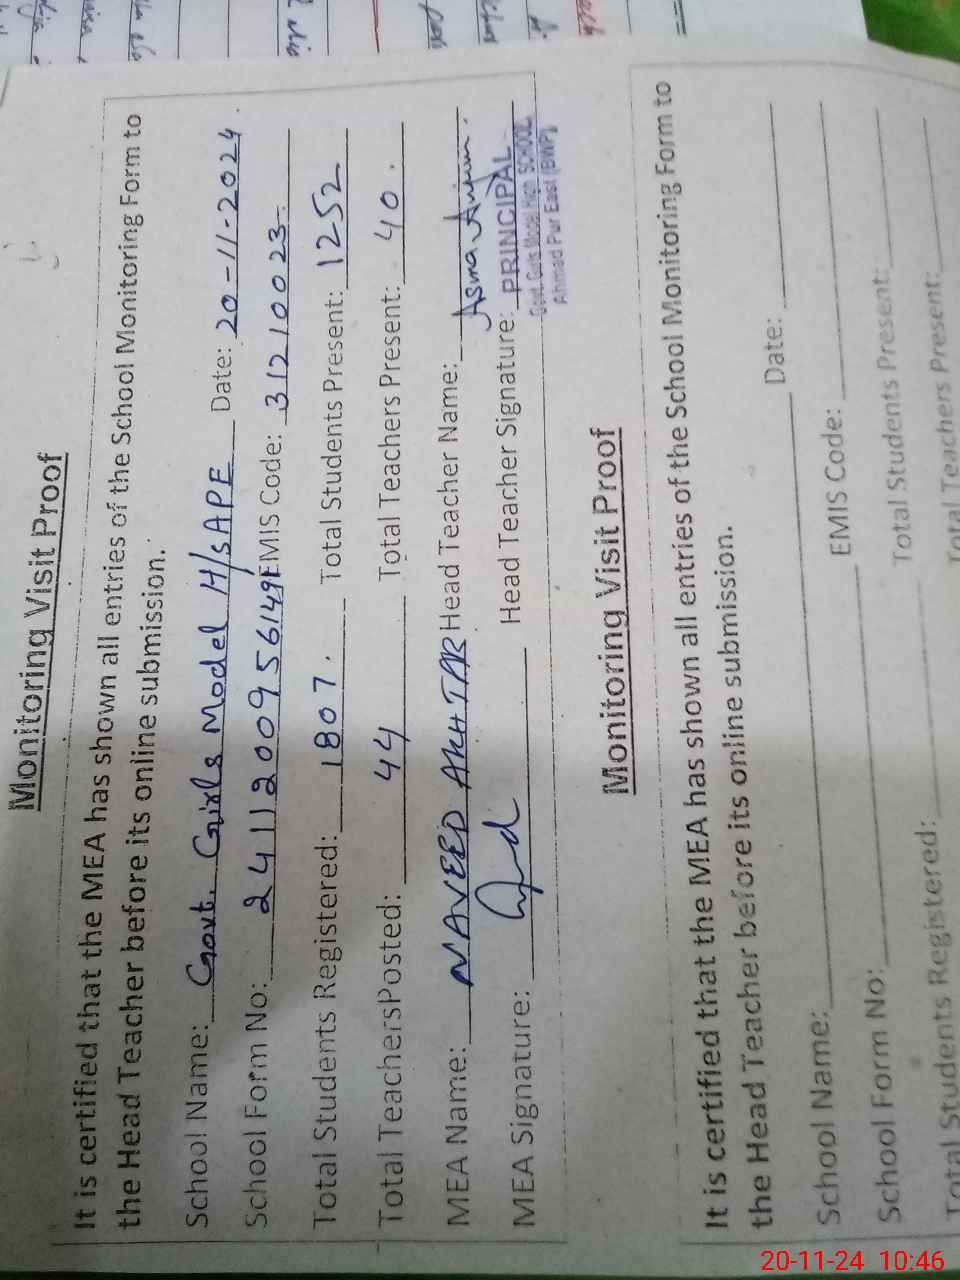 Monitoring Visit Proof
It is certified that the MEA has shown all entries of the School Monitoring Form to
the Head Teacher before its online submission.
School Name: Govt. Girls Model H/S APE Date: 20-11-2024
School Form No: 24112009561491 EMIS Code: 31210023
Total Students Registered: 1807. Total Students Present: 1252
Total TeachersPosted: 44 Total Teachers Present: 40.
MEA Name: NAVEED AKHTAR Head Teacher Name: Asma Anjum.
MEA Signature: Head Teacher Signature: PRINCIPAL
Govt. Girls Model High SCHOOL
Ahmad Pur East (BWP)
Monitoring Visit Proof
It is certified that the MEA has shown all entries of the School Monitoring Form to
the Head Teacher before its online submission.
School Name: Date:
School Form No: EMIS Code:
Total Students Registered: Total Students Present:
Total Teachers Present:
20-11-24 10:46